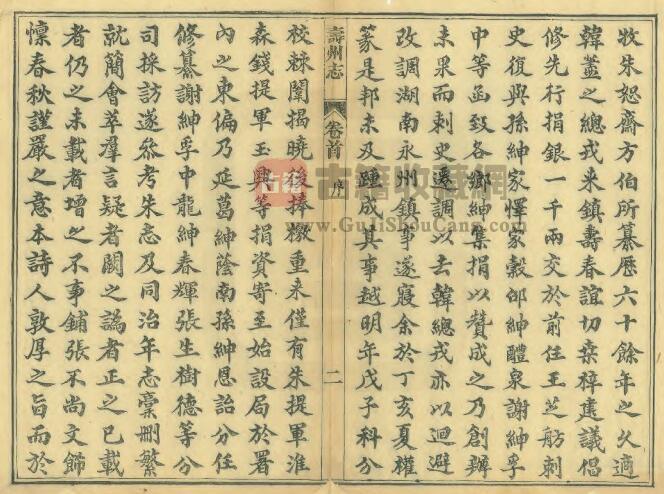 牧朱恕齋方伯所纂歷六十餘年之久適
韓蓋之總戎來鎮壽春誼切桒梓建議倡
修先行捐銀一千兩交於前任王芝舫刺
史復與孫紳家懌家穀邰紳醴泉謝紳孚
中等函致各鄉紳集捐以贊成之乃創辦
未果而刺史遷調以去韓總戎亦以迴避
改調湖南永州鎮事遂寢余於丁亥夏權
篆是邦未及踵成其事越明年戊子科分
壽州志
卷首
序
二
校棘闈揭曉後捧檄重來僅有朱提軍淮
森錢提軍玉興等捐資寄至始設局於署
內之東偏乃延葛紳蔭南孫紳恩詒分任
修纂謝紳孚中龍紳春輝張生樹德等分
司採訪遂叅考朱志及同治年志稾刪繁
就簡會萃羣言疑者闕之譌者正之已載
者仍之未載者增之不事鋪張不尚文飾
懔春秋謹嚴之意本詩人敦厚之旨而於
古籍
古籍收藏网
www.GujiShouCang.com